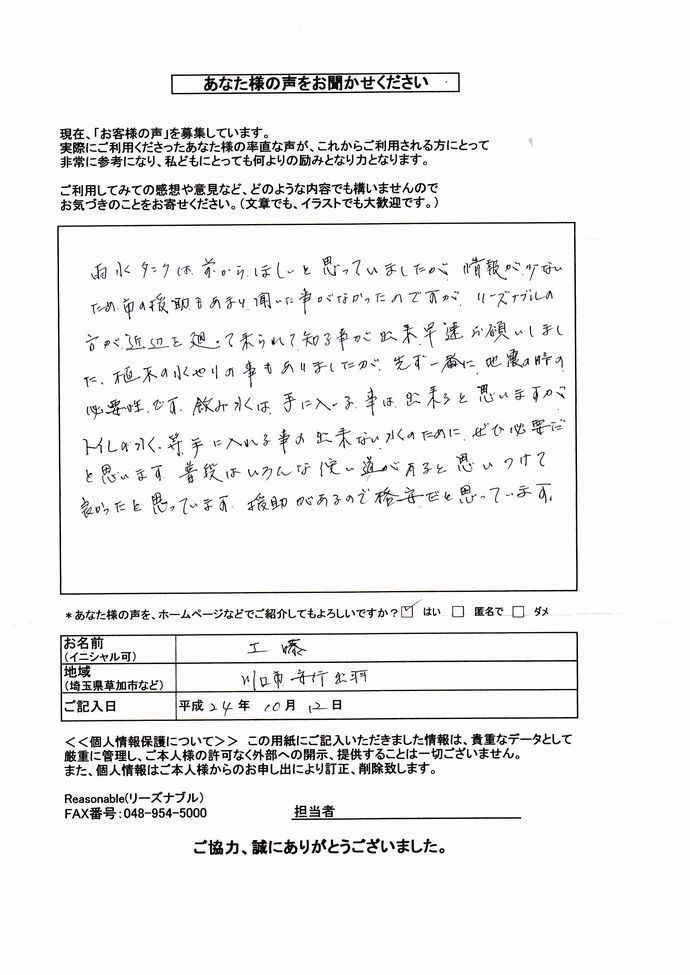 あなた様の声をお聞かせください
現在、「お客様の声」を募集しています。
実際にご利用くださったあなた様の率直な声が、これからご利用される方にとって
非常に参考になり、私どもにとっても何よりの励みとなり力となります。
ご利用してみての感想や意見など、どのような内容でも構いませんので
お気づきのことをお寄せください。(文章でも、イラストでも大歓迎です。)
雨水タンクは前からほしいと思っていましたが 情報が少ない
ため市の援助もあまり聞いた事がなかったのですが、リーズナブルの
方が近辺を廻って来られて知る事が出来早速お願いしまし
た、植木の水やりの事もありましたが、先ず一番に地震の時の
必要性です 飲み水は、手に入いる事は出来ると思いますが
トイレの水、等手に入れる事の出来ない水のために、ぜひ必要だ
と思います 普段はいろんな使い道が有ると思いつけて
良かったと思っています 援助があるので格安だと思っています。
*あなた様の声を、ホームページなどでご紹介してもよろしいですか?☑ はい □ 匿名で □ ダメ
お名前
(イニシャル可)
工藤
地域
(埼玉県草加市など)
川口市安行出羽
ご記入日 平成 24 年 10 月 12 日
<<個人情報保護について>> この用紙にご記入いただきました情報は、貴重なデータとして
厳重に管理し、ご本人様の許可なく外部への開示、提供することは一切ございません。
また、個人情報はご本人様からのお申し出により訂正、削除致します。
Reasonable(リーズナブル)
FAX番号:048-954-5000
担当者
ご協力、誠にありがとうございました。